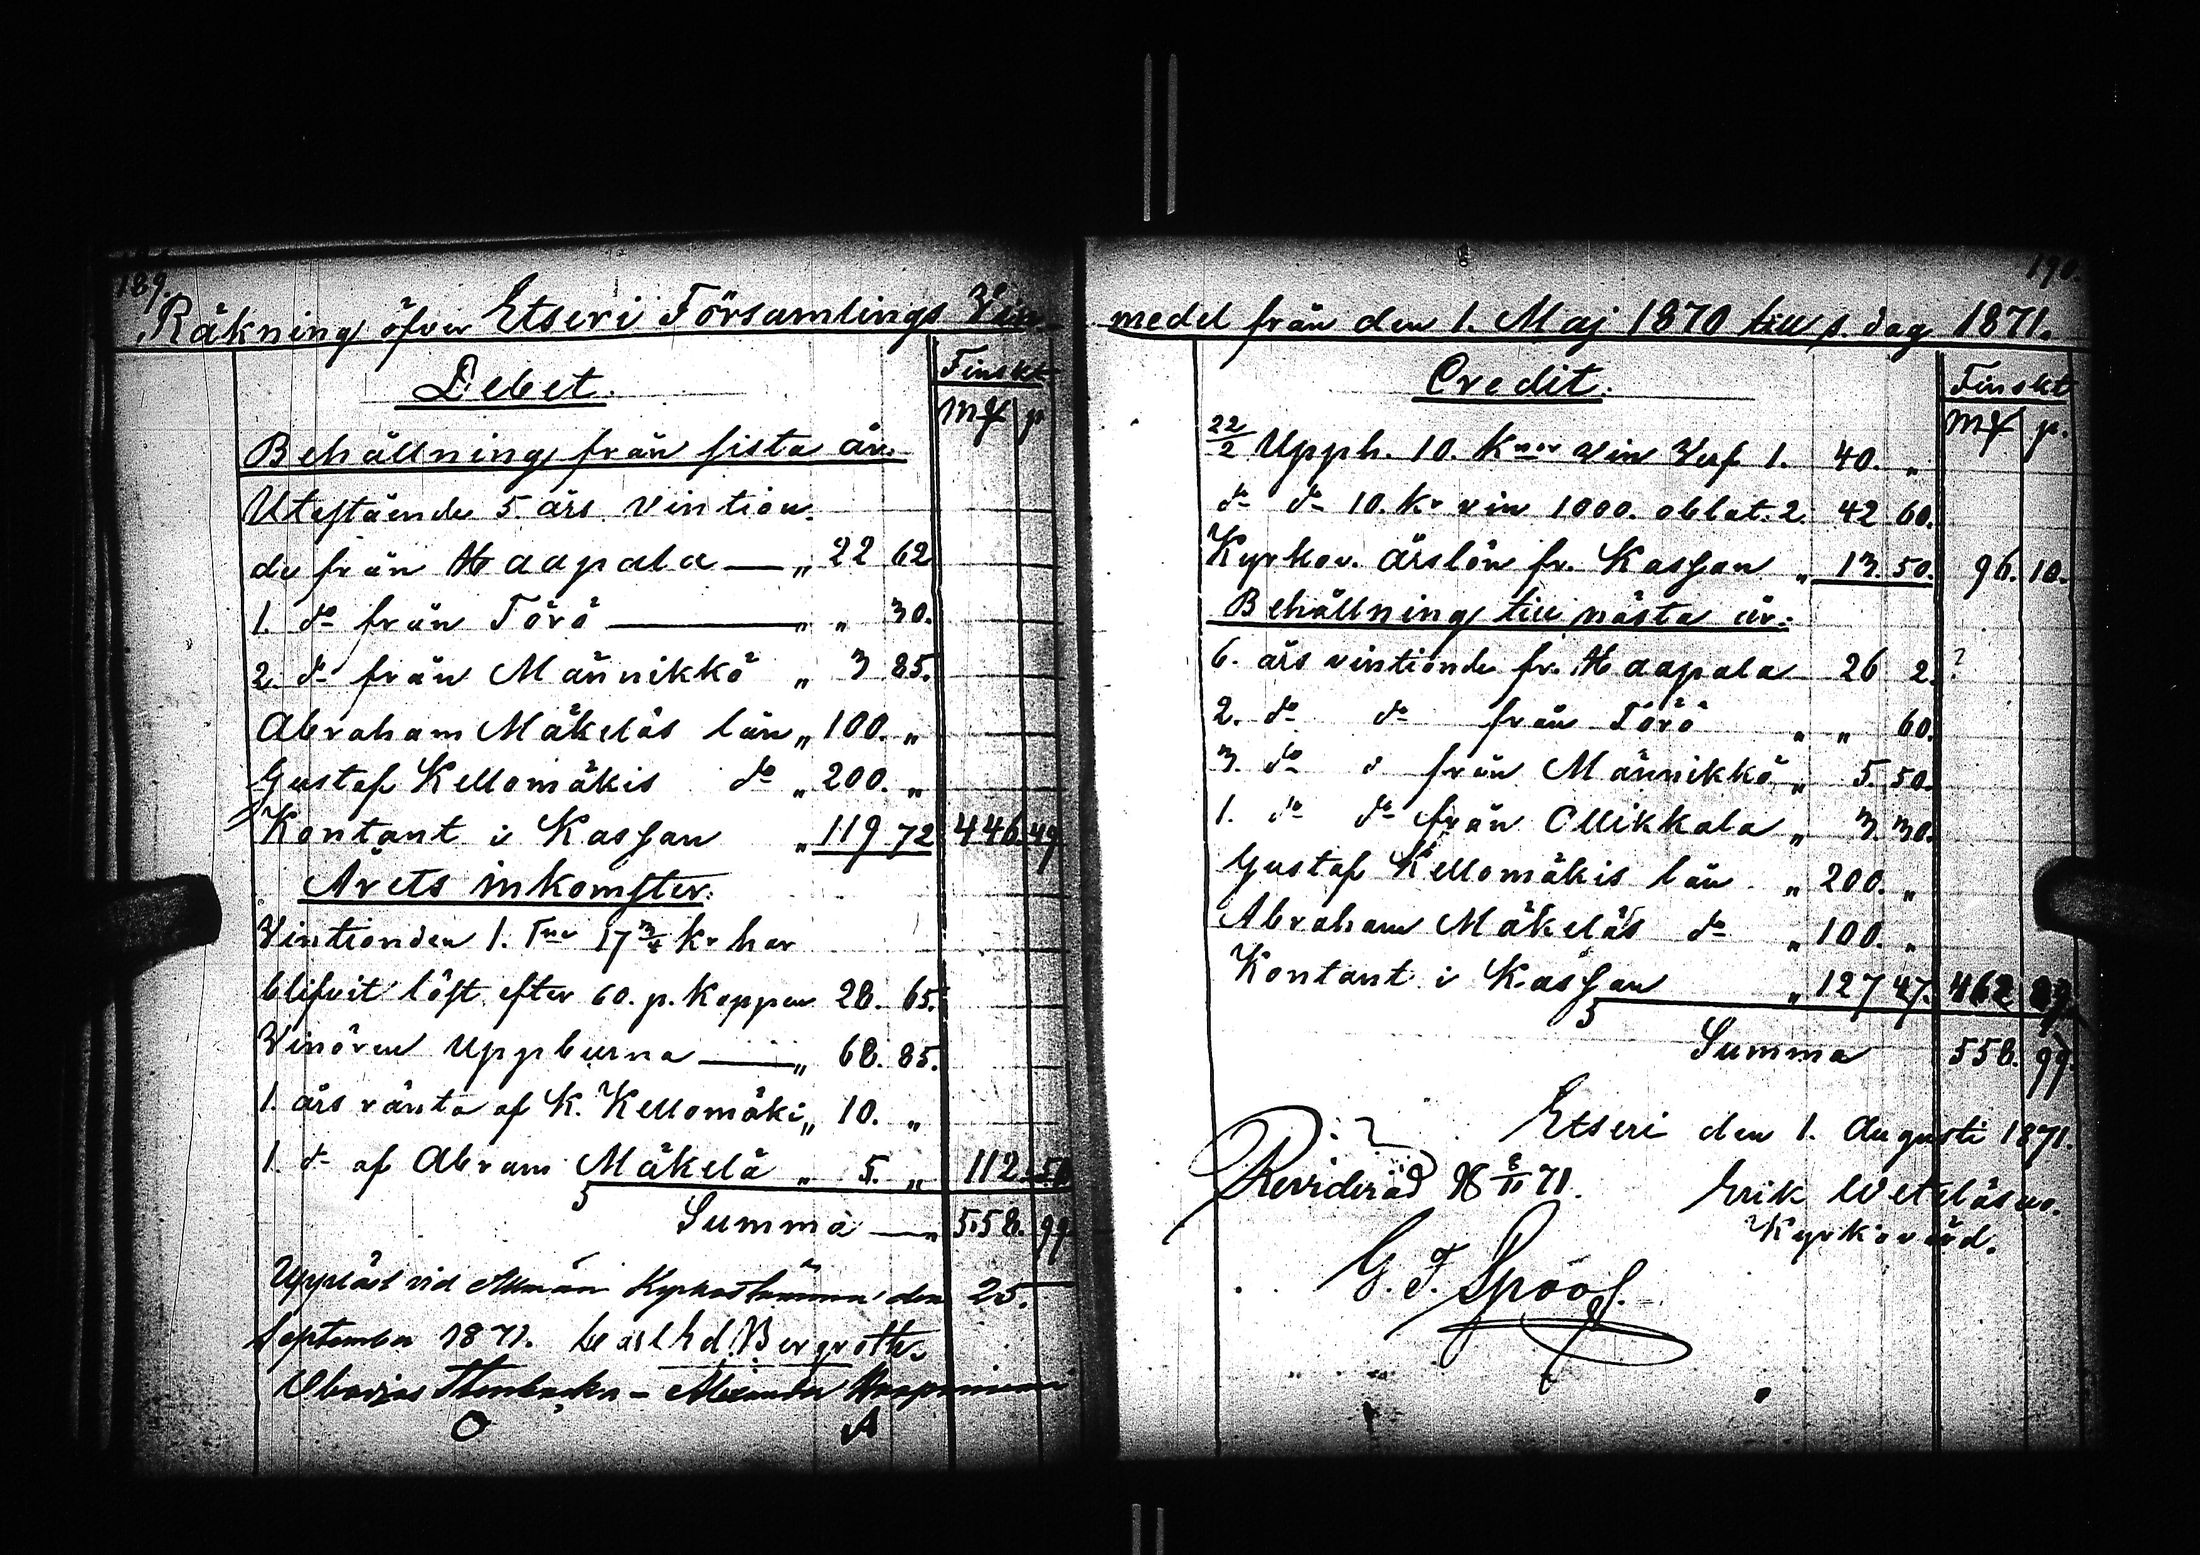 189.
Räkning öfver Etseri Församlings Vin-
Debet.
Finskt
Mk p
Behållning från sista år.
Utestående 5. års vintion-
de från Haapala — „ 22 62
1. do från Törö — „ „ 30.
2. do från Männikkö „ 3 85.
Abraham Mäkeläs lån „ 100. „
Gustaf Kellomäkis do „ 200. „
Kontant i Kassan „ 119 72 446. 49
Årets inkomster.
Vintionden 1. Tnr 17 3/4 Kr har
blifvit löst efter 60. p. Kappen 28. 65.
Vinören Uppburna — „ 68. 85.
1. års ränta af K. Kellomäki „ 10. „
1. do af Abram Mäkelä „ 5. „ 112. 50
Summa — „ 558. 99
Uppläst vid Allmän Kyrkostämma den 25.
September 1871. Bergroth.
Alexander Haapaniemi
O A
190.
medel från den 1. Maj 1870 till s. dag 1871.
Credit.
Finskt
Mk p.
22/2 Upph. 10. Knor vin Verf. 1. 40. „
do do 10. Kr vin 1000. oblat. 2. 42 60.
Kyrkov. årslön fr. Kassan „ 13. 50. 96. 10.
Behållning till nästa år.
6. års vintionde fr. Haapala 26 2. ?
2. do do från Törö „ „ 60.
3. do d från Männikkö „ 5. 50.
1. do do från Ollikkala „ 3. 30.
Gustaf Kellomäkis lån „ 200. „
Abraham Mäkeläs do „ 100. „
Kontant i Kassan „ 127 47. 462 89
Summa 558. 99.
Etseri den 1. Augusti 1871.
Reviderad 71.
Erik
Kyrkovärd.
G. F. Spoof.